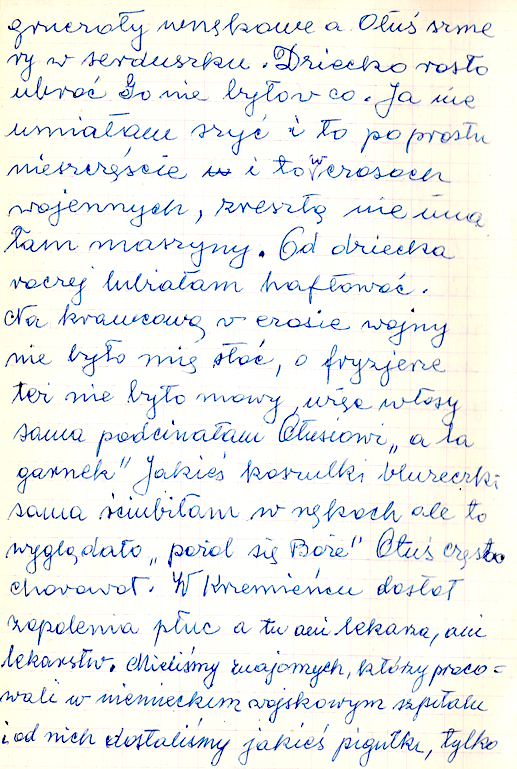 gruczoły wnękowe a Oluś szme
ry w serduszku. Dziecko rosło
ubrać Go nie było w co. Ja nie
umiałam szyć i to po prostu
nieszczęście i to w czasach
wojennych, zresztą nie mia
łam maszyny. Od dziecka
raczej lubiałam haftować.
Na krawcową w czasie wojny
nie było mię stać, o fryzjerze
też nie było mowy, więc włosy
sama podcinałam Olusiowi „a la
garnek" Jakieś koszulki bluzeczki
sama ściubiłam w rękach ale to
wyglądało „pożal się Boże" Oluś często
chorował. W Krzemieńcu dostał
zapalenia płuc a tu ani lekarza, ani
lekarstw. Mieliśmy znajomych, którzy praco=
wali w niemieckim wojskowym szpitalu
i od nich dostaliśmy jakieś pigułki, tylko